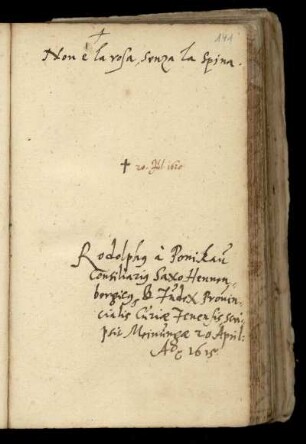 141
Non è la rosa, senza la Spina.
† 20. Jul. 1620
Rodolphus à Ponikau
Consiliarius Saxo Hennen-
bergicus & Judex Provin-
cialis Curiae Jenensis scri-
psit Meinungae 20 April:
Ao 1615